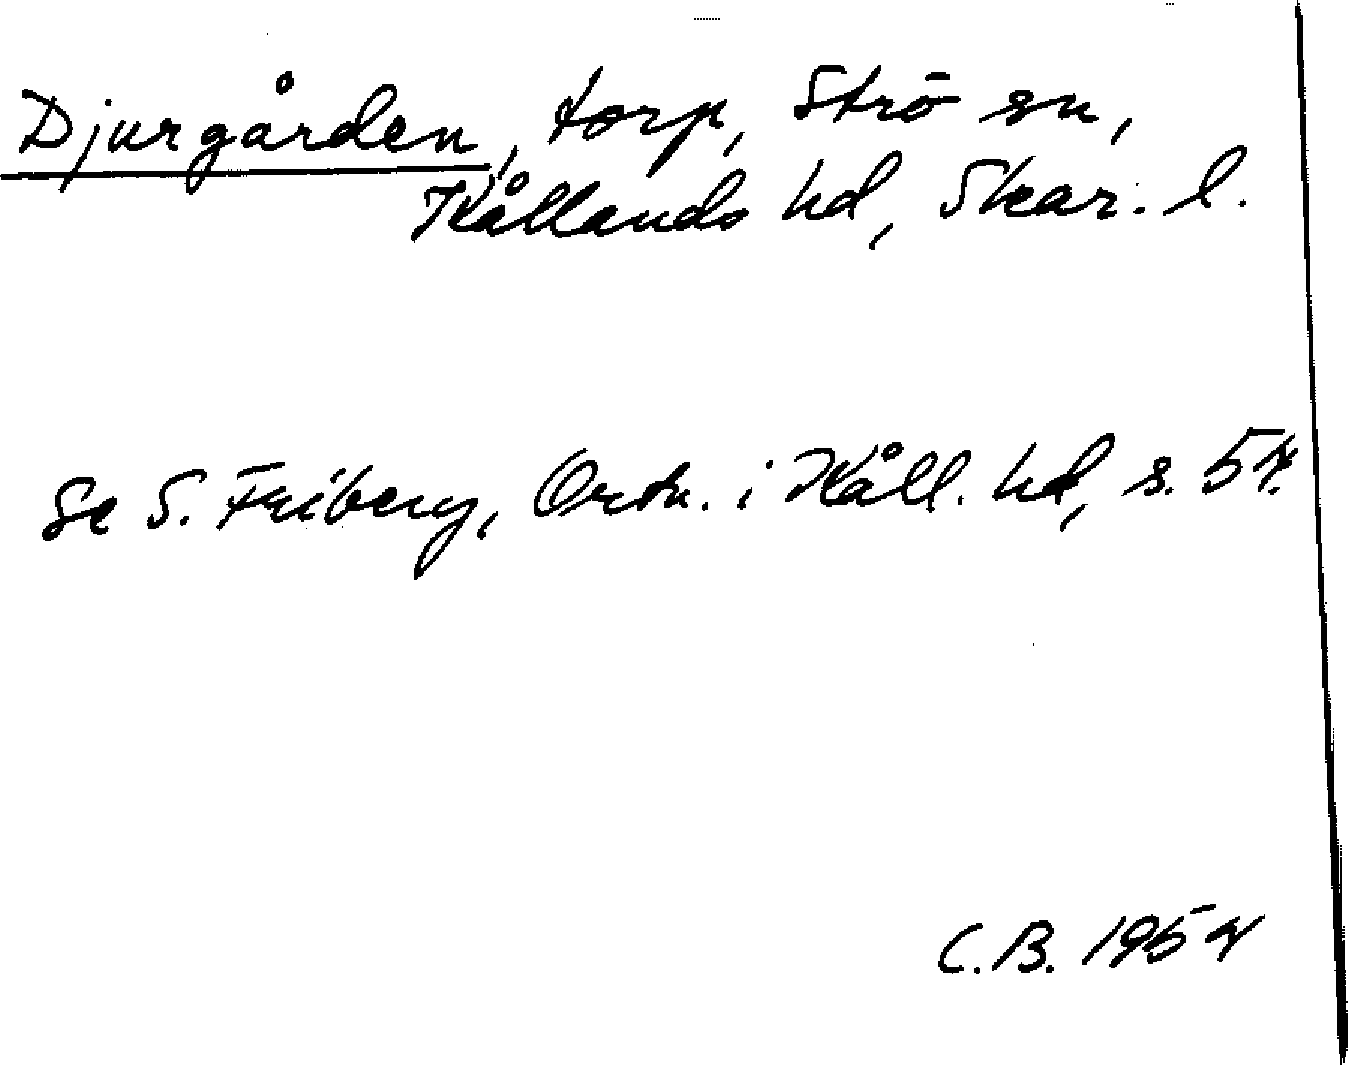 Djurgården, torp, Strö sn,
Kållands hd, Skar. l.
Se S. Friberg, Ortn. i Kåll. hd, s. 54.
C.B. 1954